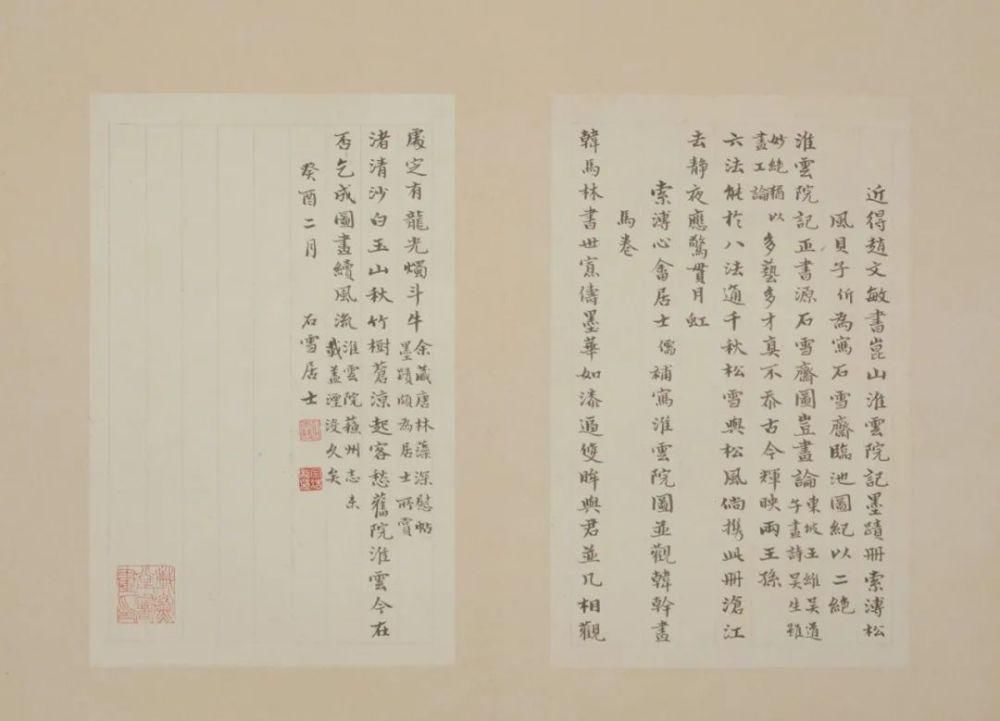 近得趙文敏書崑山淮雲院記墨蹟冊索溥松
風貝子伒為寫石雪齋臨池圖紀以二絶
淮雲院記正書源石雪齋圖豈畫論
東坡王維吳道
子畫詩吳生雖
妙絶猶以
畫工論
多藝多才真不忝古今輝映兩王孫
六法能於八法通千秋松雪與松風倘攜此冊滄江
去靜夜應驚貫月虹
索溥心畬居士儒補寫淮雲院圖並觀韓幹畫
馬卷
韓馬林書世寡儔墨華如漆逼雙眸與君並几相觀
處定有龍光燭斗牛
余藏唐林藻深慰帖
墨蹟頗為居士所賞
渚清沙白玉山秋竹樹蒼涼起客愁舊院淮雲今在
否乞成圖畫續風流
淮雲院蘇州志未
載蓋湮沒久矣
癸酉二月 石雪居士